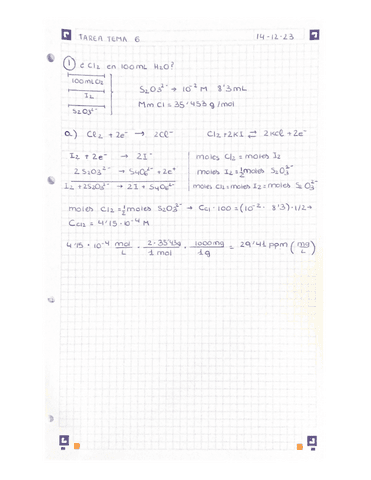 TAREA TEMA 6
14-12-23
① ¿ Cl₂ en 100mL H₂O?
100mL Cl₂
I₂
S₂O₃²⁻
S₂O₃²⁻ → 10⁻² M 8'3mL
Mm Cl = 35'453 g/mol
a) Cl₂ + 2e⁻ → 2Cl⁻ Cl₂ + 2KI ⇄ 2KCl + 2e⁻
I₂ + 2e⁻ → 2I⁻ moles Cl₂ = moles I₂
2S₂O₃²⁻ → S₄O₆²⁻ + 2e⁻ moles I₂ = ½ moles S₂O₃²⁻
I₂ + 2S₂O₃²⁻ → 2I + S₄O₆²⁻ moles Cl₂ = moles I₂ = moles S₂O₃²⁻
moles Cl₂ = ½ moles S₂O₃²⁻ → Ccl · 100 = (10⁻² · 8'3) · 1/2 →
Ccl₂ = 4'15 · 10⁻⁴ M
4'15 · 10⁻⁴ mol/L · 2·35'43g/1 mol · 1000mg/1g = 29'41 ppm (mg/L)